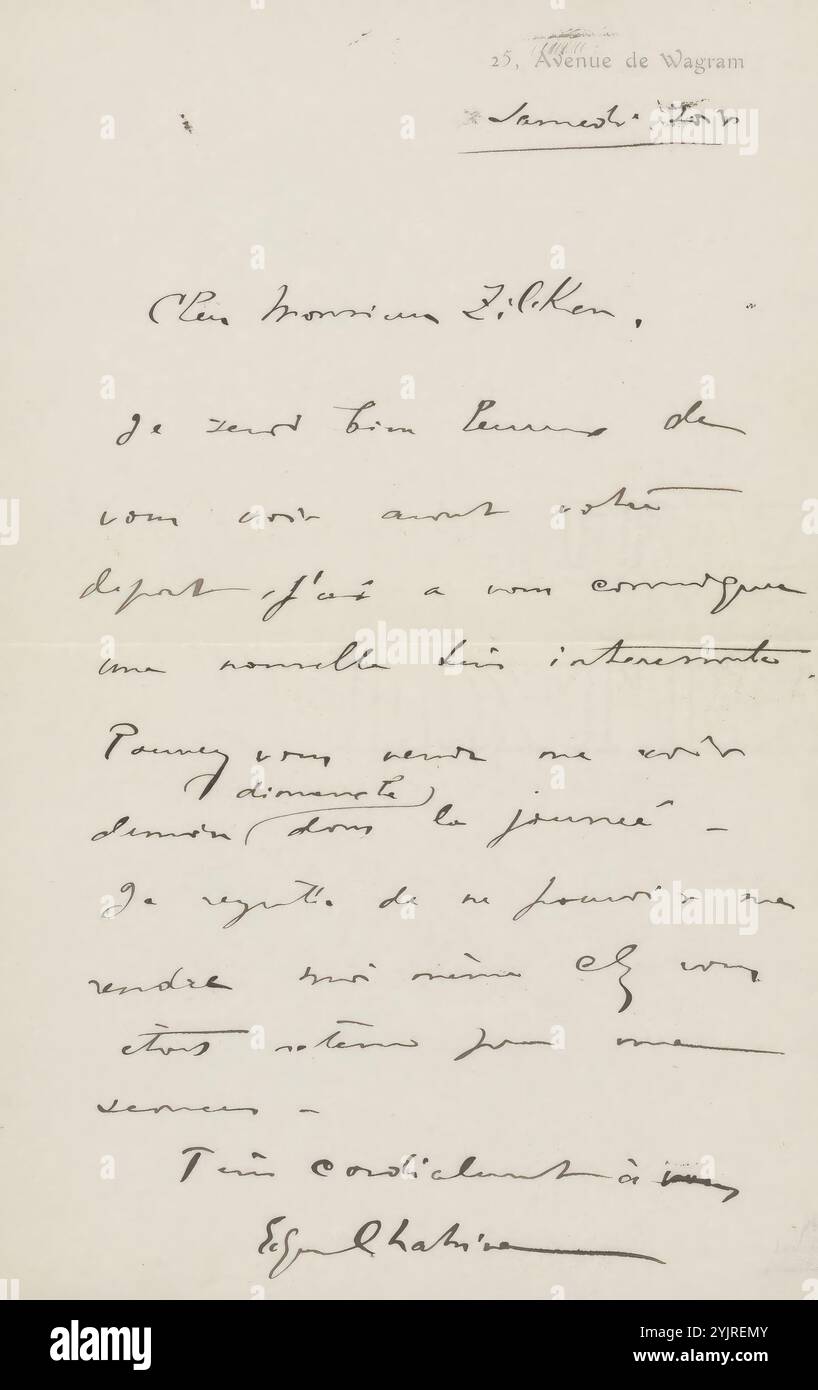 25, Avenue de Wagram
Samedi soir
Cher Monsieur Zilcken,
Je serai bien heureux de
vous voir avant votre
depart, j'ai a vous communiquer
une nouvelle très interessante.
Pouvez vous venir me voir
dimanche
demain dans la journeé –
Je regrette de ne pouvoir me
rendre moi même chez vous
étant retenu par une
seance –
Très cordialement à vous
Edgar Chahine
alamy
Image ID: 2YJREMY
www.alamy.com